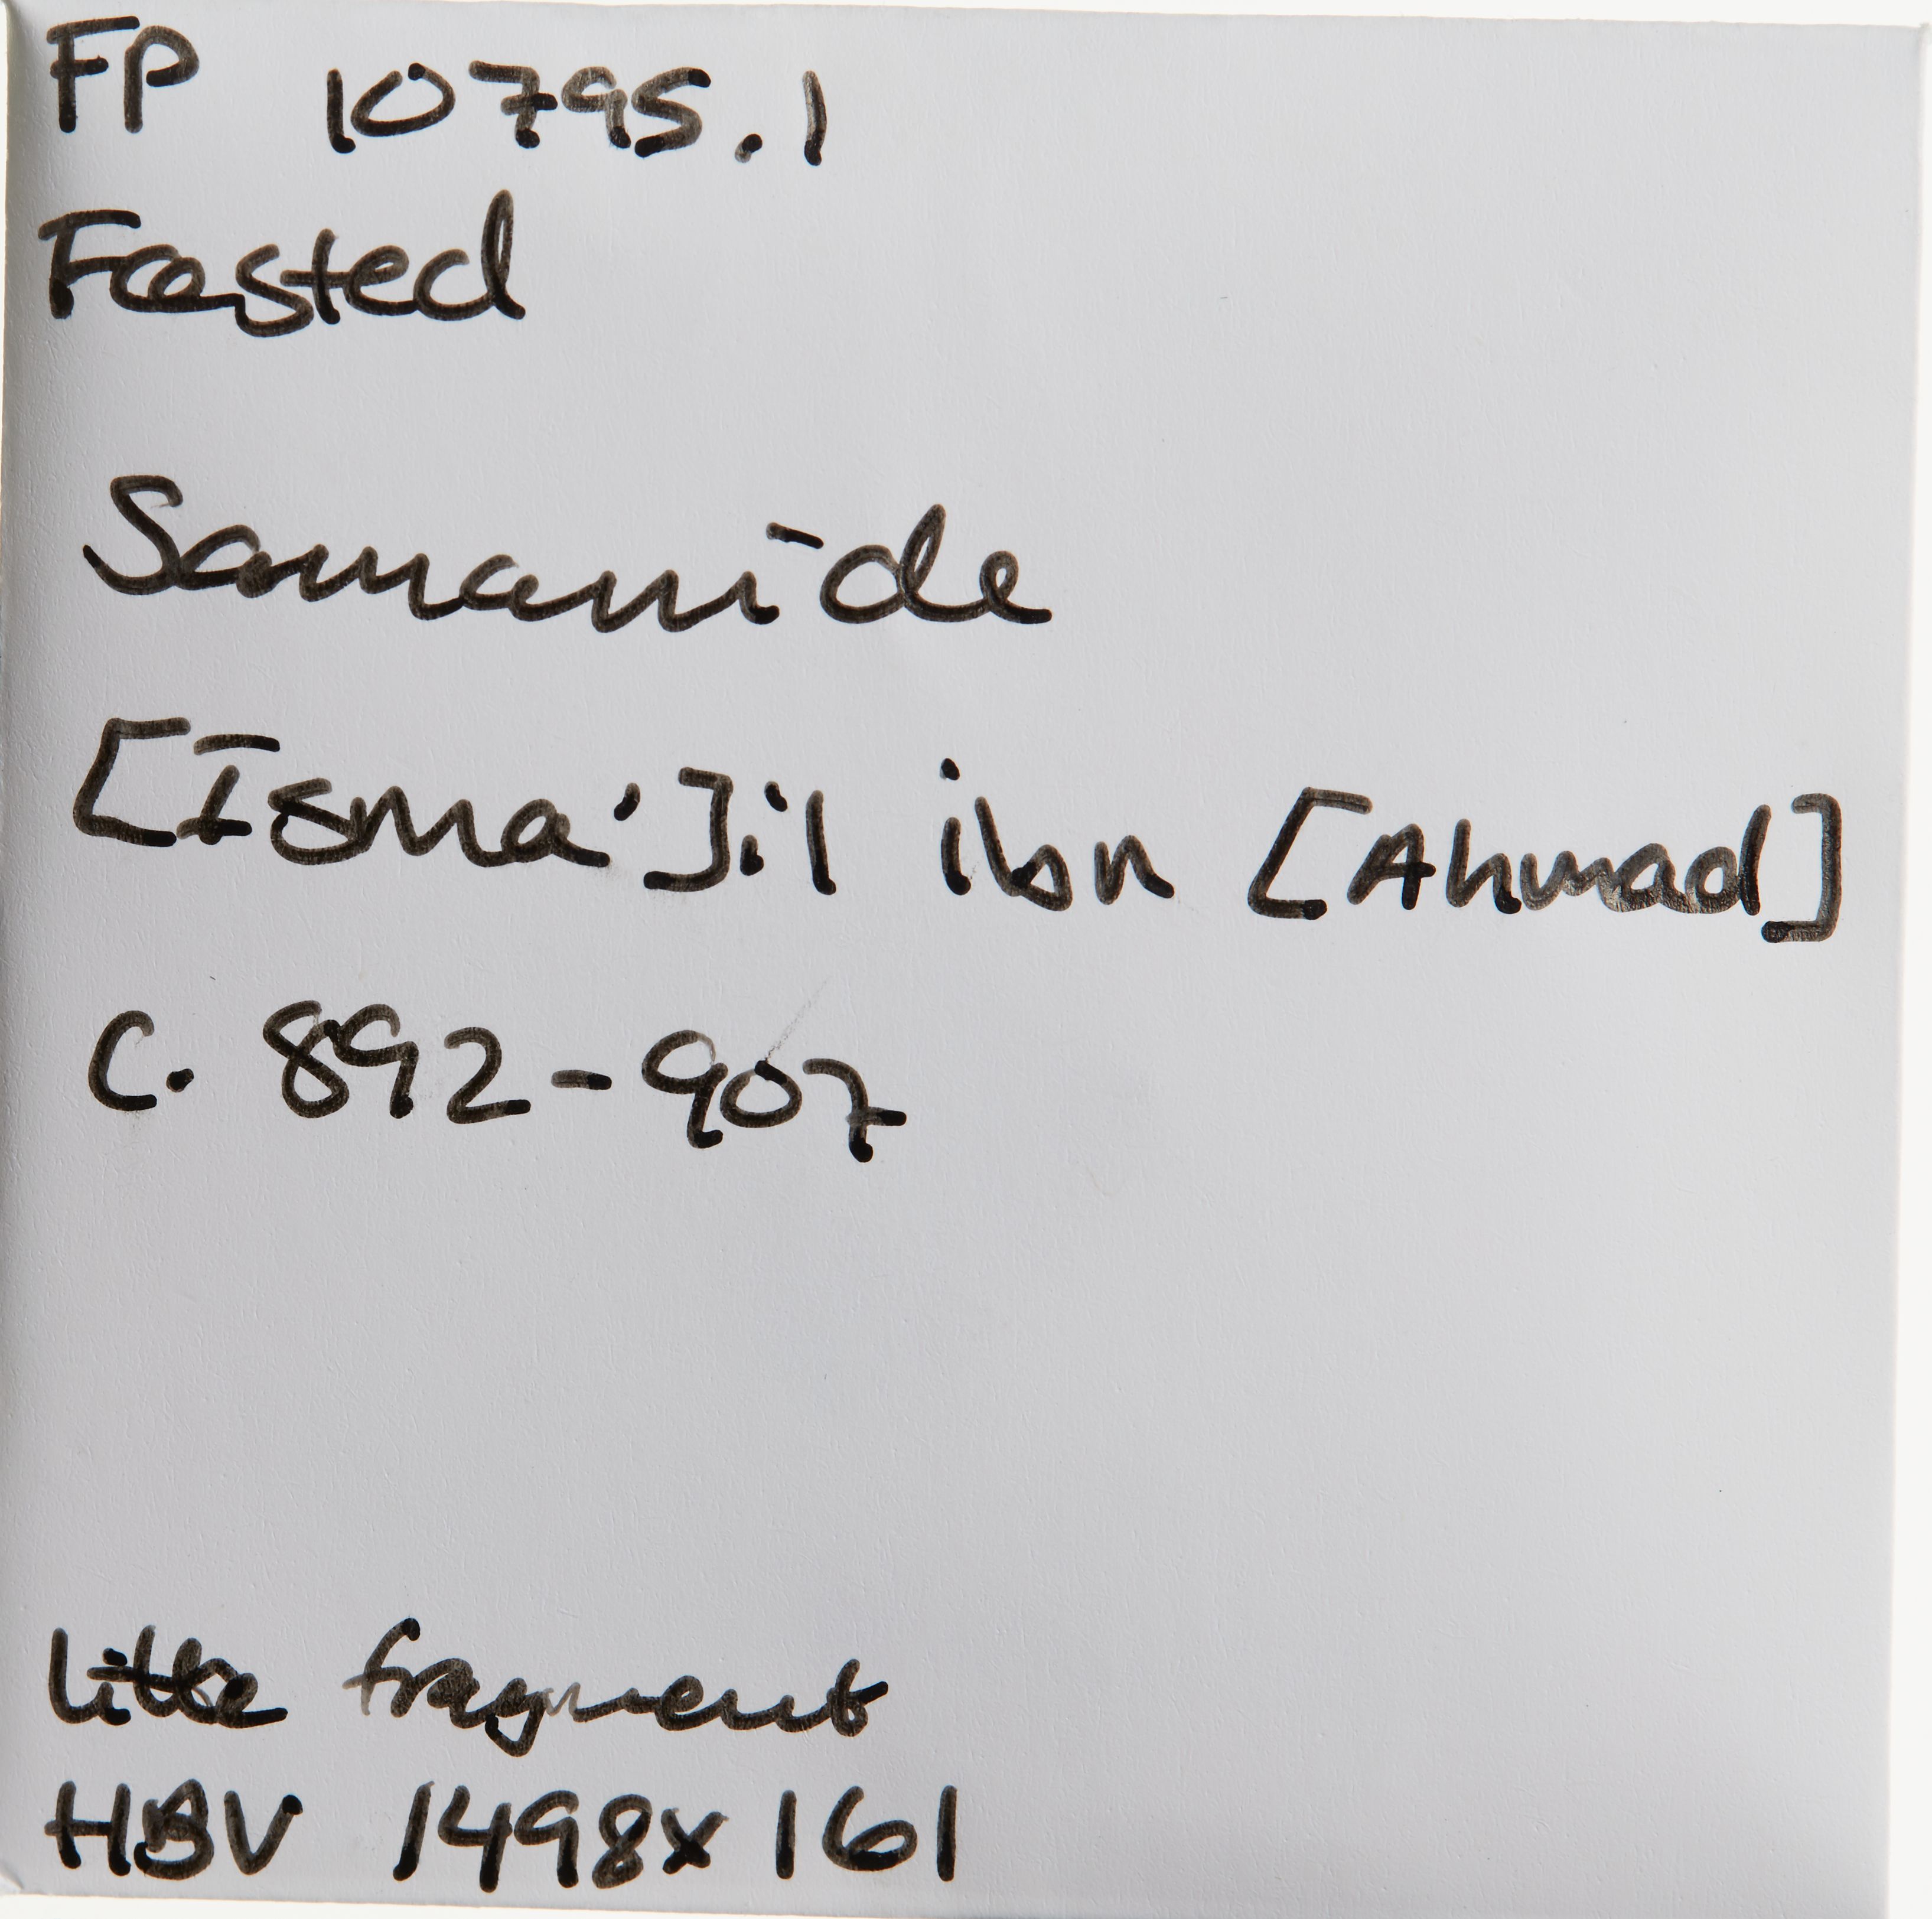 FP 10795.1
Fæsted
Samanide
[Isma']il ibn [Ahmad]
C. 892-907
Lille fragment
HBV 1498x161